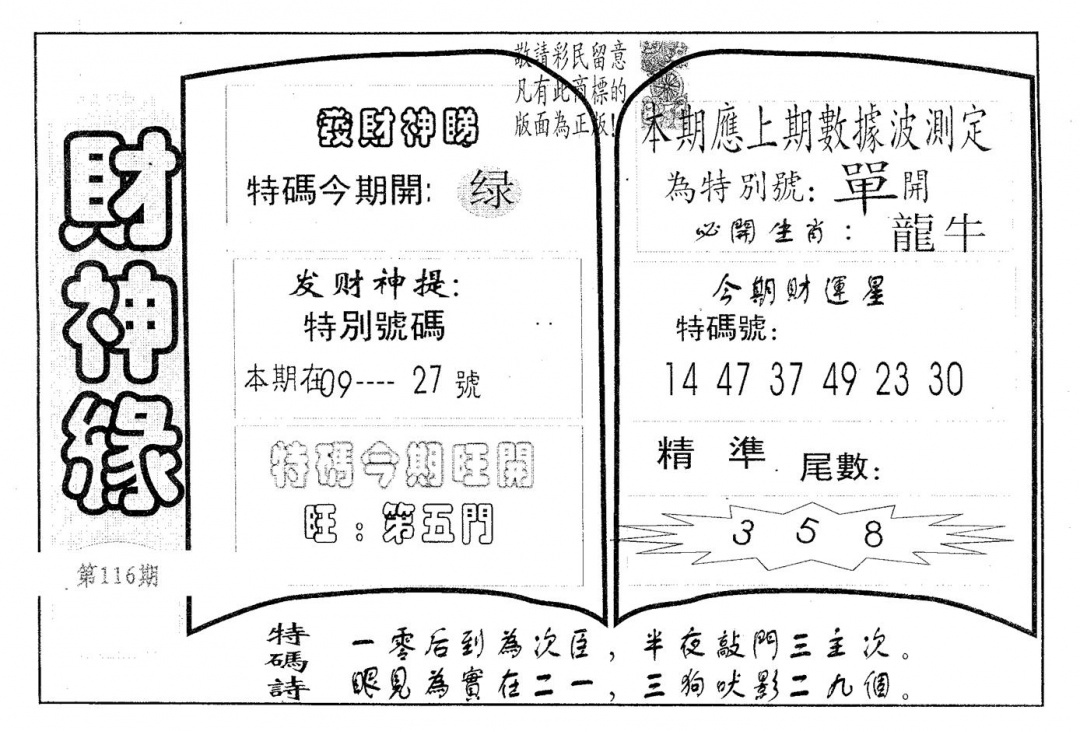 財神緣
第116期
敬請彩民留意
凡有此商標的
版面為正版!
發財神睇
特碼今期開: 绿
发财神提:
特別號碼
本期在09---- 27 號
特碼今期旺開
旺:第五門
本期應上期數據波測定
為特別號: 單開
必開生肖: 龍牛
今期財運星
特碼號:
14 47 37 49 23 30
精 準 尾數:
3 5 8
特碼詩
一零后到為次臣,半夜敲門三主次。
眼見為實在二一,三狗吠影二九個。